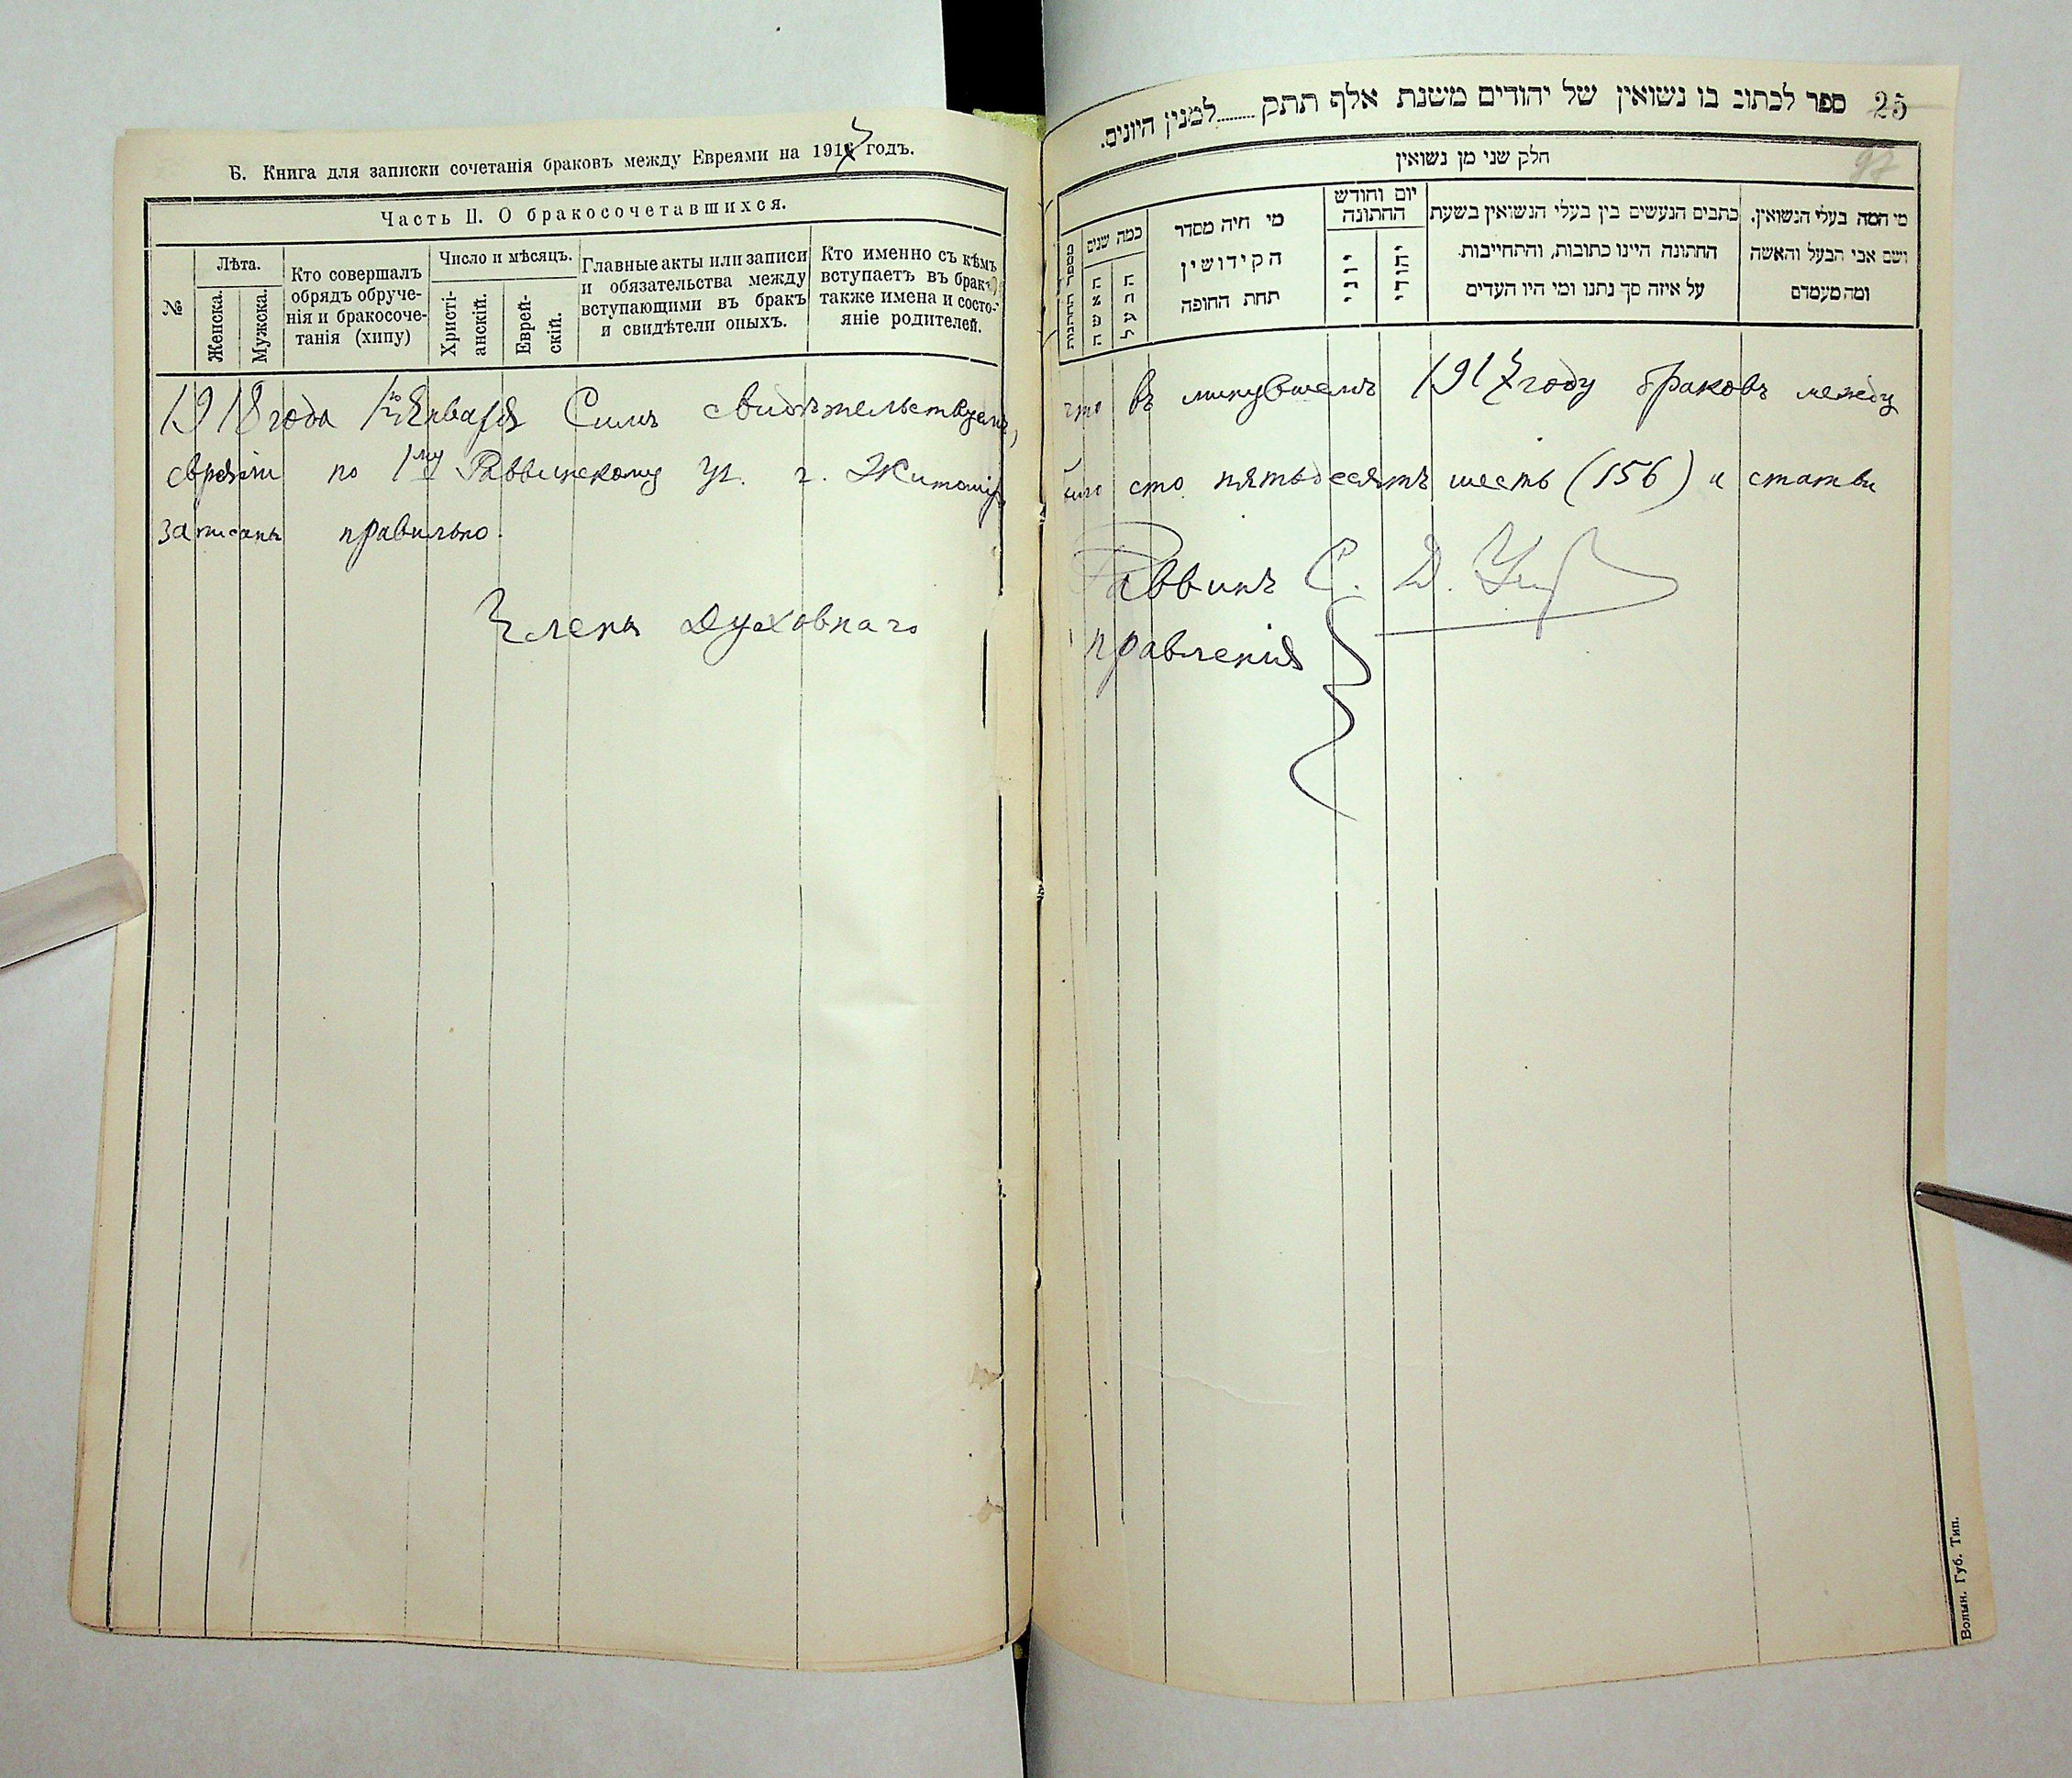 Б. Книга для записки сочетанія браковъ между Евреями на 1917 годъ.
Часть II. О бракосочетавшихся.
№
Лѣта.
Женска.
Мужска.
Кто совершалъ
обрядъ обруче-
нія и бракосоче-
танія (хипу)
Число и мѣсяцъ.
Христі-
анскій.
Еврей-
скій.
Главные акты или записи
и обязательства между
вступающими въ бракъ
и свидѣтели оныхъ.
Кто именно съ кѣмъ
вступаетъ въ бракъ
также имена и состо-
яніе родителей.
1918 года 1го Января Симъ свидѣтельствуемъ,
евреями по 1му Раввинскому уч. г. Житоміръ
записаны правильно.
Члены Духовнаго
ספר לכתוב בו נשואין של יהודים משנת אלף תתק........למנין היונים.
25
97
חלק שני מן נשואין
מספר החתונות
כמה שנים
האשה
הבעל
מי היה מסדר
הקידושין
תחת החופה
יום וחודש
החתונה
יוני
יהודי
כתבים הנעשים בין בעלי הנשואין בשעת
החתונה היינו כתובות, והתחייבות
על איזה סך נתנו ומי היו העדים
מי המה בעלי הנשואין,
ושם אבי הבעל והאשה
ומה מעמדם
что въ минувшемъ 1917 году браковъ между
было сто пятьдесятъ шесть (156) и статьи
Раввинъ С. Д.
правленія
Волын. Губ. Тип.